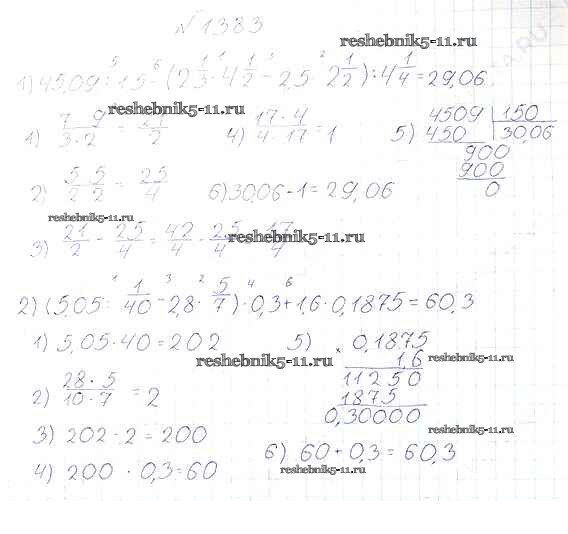 №1383
reshebnik5-11.ru
1) 45,09 : 1,5 - (2 1/3 · 4 1/2 - 2,5 · 2 1/2) : 4 1/4 = 29,06
reshebnik5-11.ru
1) (7 · 9)/(3 · 2) = 21/2
4) (17 · 4)/(4 · 17) = 1
5) 4509 | 150
450 30,06
900
900
0
2) (5 · 5)/(2 · 2) = 25/4
6) 30,06 - 1 = 29,06
reshebnik5-11.ru
3) 21/2 - 25/4 = 42/4 - 25/4 = 17/4
reshebnik5-11.ru
2) (5,05 : 1/40 - 2,8 · 5/7) · 0,3 + 1,6 · 0,1875 = 60,3
1) 5,05 · 40 = 202
5) × 0,1875
1,6
11250
1875
0,30000
reshebnik5-11.ru
reshebnik5-11.ru
2) (28 · 5)/(10 · 7) = 2
3) 202 - 2 = 200
reshebnik5-11.ru
4) 200 · 0,3 = 60
6) 60 + 0,3 = 60,3
reshebnik5-11.ru